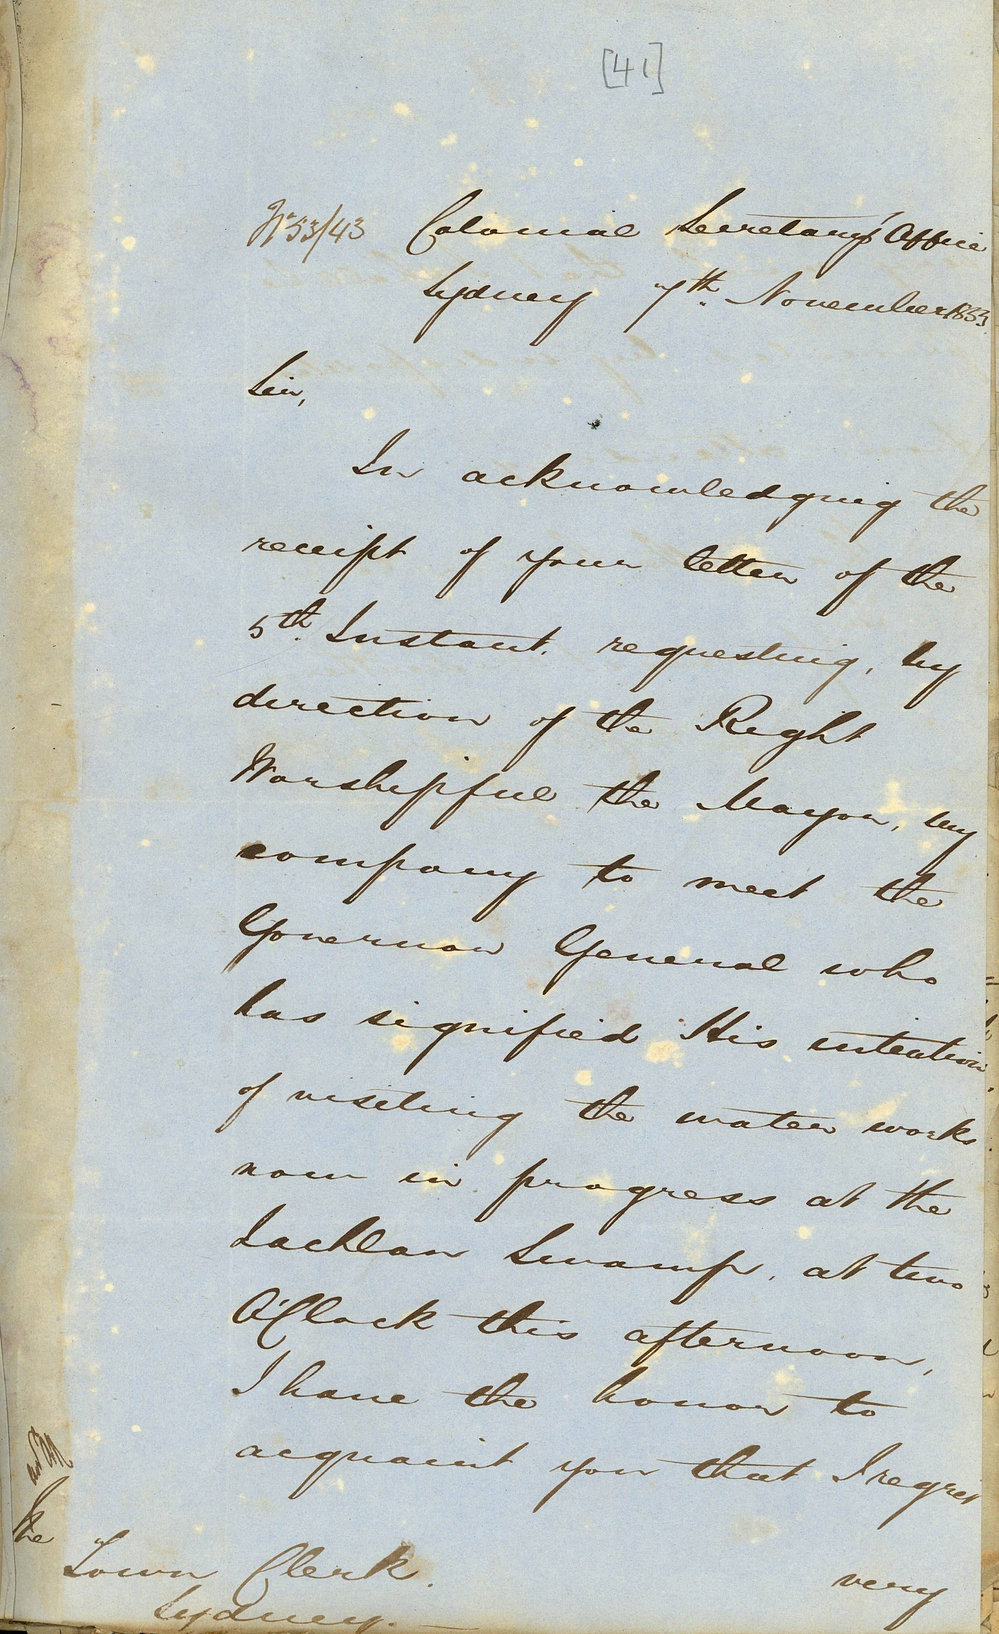 [41]
No 53/43 Colonial Secretary's Office
Sydney 7th. November 1853.
Sir,
In acknowledging the
receipt of your letter of the
5th. Instant, requesting, by
direction of the Right
Worshipful the Mayor, my
company to meet the
Governor General who
has signified His intention
of visiting the water works
now in progress at the
Lachlan Swamp, at two
O'Clock this afternoon,
I have the honor to
acquaint you that I regret
very
The
Town Clerk.
Sydney.